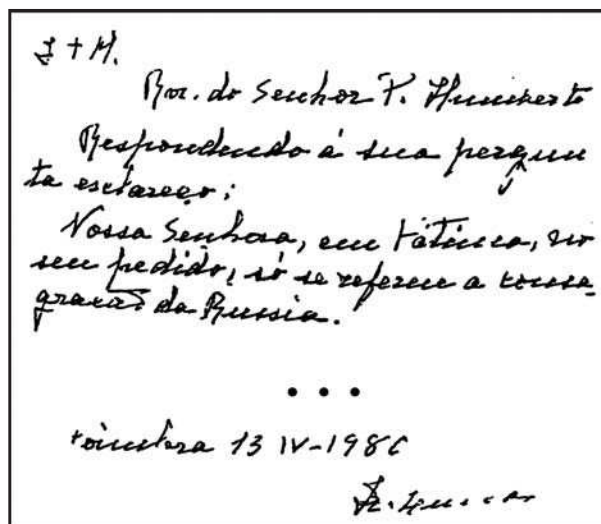 J + M.
Rev. do Senhor P. Humberto
Respondendo á sua pergun
ta esclareço:
Nossa Senhora, em Fátima, no
seu pedido, só se referiu a consa-
gração da Russia.
• • •
Coimbra 13 IV-1980